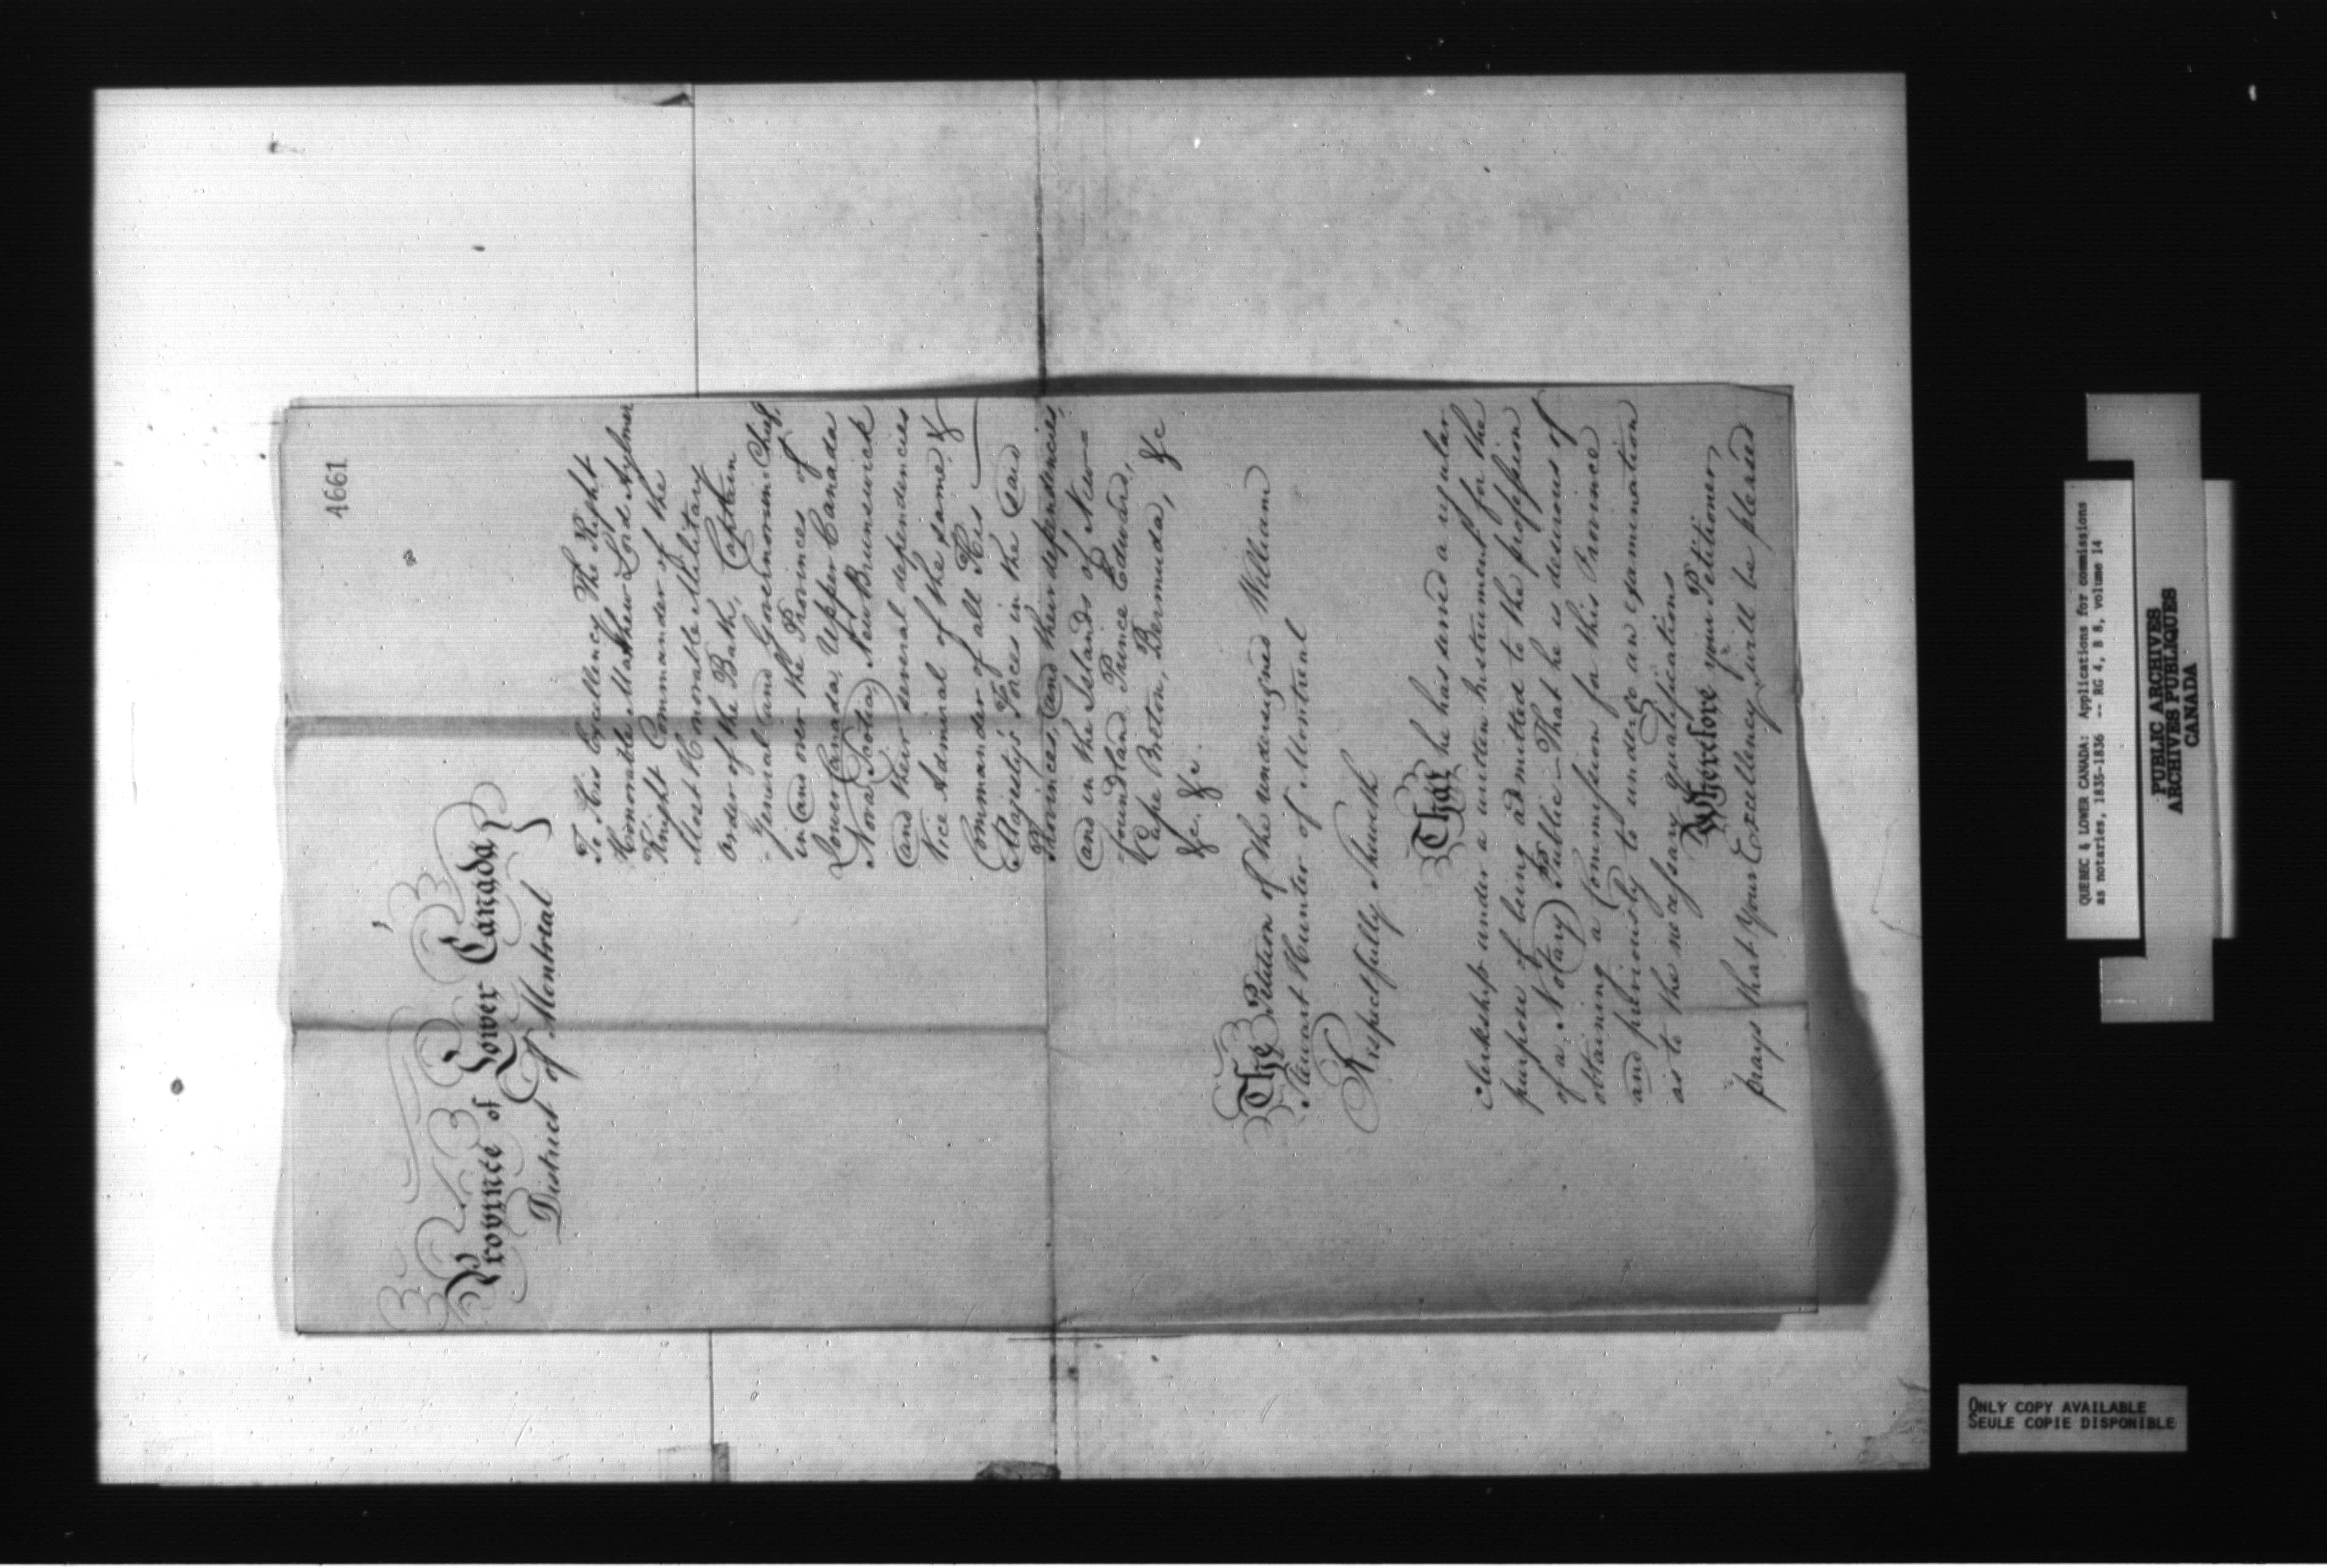 4661
Province of Lower Canada
District of Montreal
To His Excellency The Right
Honorable Matthew Lord Aylmer
Knight Commander of the
Most Honorable Military
Order of the Bath, Captain
General and Governor in Chief
in and over the Provinces of
Lower Canada, Upper Canada
Nova Scotia, New Brunswick
and their several dependencies
Vice Admiral of the same &
Commander of all His
Majesty's Forces in the said
Provinces, and their dependencies,
and in the Islands of New=
=foundland, Prince Edward,
Cape Breton, Bermuda, &c
&c. &c.
The Petition of the undersigned William
Stewart Hunter of Montreal
Respectfully Sheweth
That he has served a regular
Clerkship under a written Instrument for the
purpose of being admitted to the profession
of a Notary Public – That he is desirous of
obtaining a Commission for this Province
and previously to undergo an examination
as to the necessary qualifications
Wherefore your Petitioner,
prays that Your Excellency will be pleased
QUEBEC & LOWER CANADA: Applications for commissions
as notaries, 1835-1836 -- RG 4, B 8, volume 14
PUBLIC ARCHIVES
ARCHIVES PUBLIQUES
CANADA
ONLY COPY AVAILABLE
SEULE COPIE DISPONIBLE